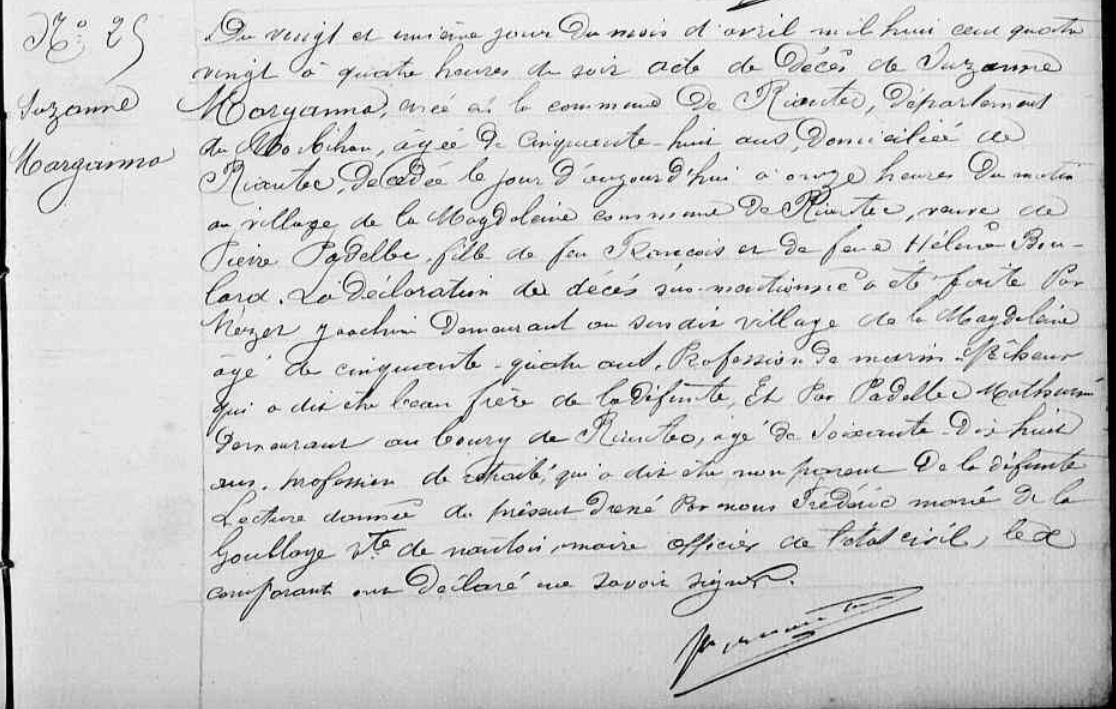 N° 25
Suzanne
Marganna
Du vingt et unième jour du mois d'avril mil huit cent quatre
vingt à quatre heures du soir acte de Décès de Suzanne
Marganna, née à la commune de Riantec, Département
du Morbihan, âgée de cinquante-huit ans, Domiciliée de
Riantec, décédée le jour d'aujourd'hui à onze heures du matin
au village de la Magdeleine commune de Riantec, veuve de
Pierre Padellec, fille de feu François et de feue Hélène Bou-
lard. La déclaration de décés sus-mentionné a été faite Par
Nézer Joachim Demeurant au susdit village de la Magdeleine
âgé de cinquante-quatre ans, Profession de marin-Pêcheur
qui a dit être beau frère de la défunte, Et Par Padellec Mathurin
Demeurant au bourg de Riantec, âgé de soixante-Dix huit
ans, profession de retraité, qui a dit être non parent De la défunte
Lecture donnée du présent Dressé Par nous Frédéric marie de la
Goublaye Vte de nantois, maire officier de l'état civil, les
comparant ont Déclaré ne savoir signer.